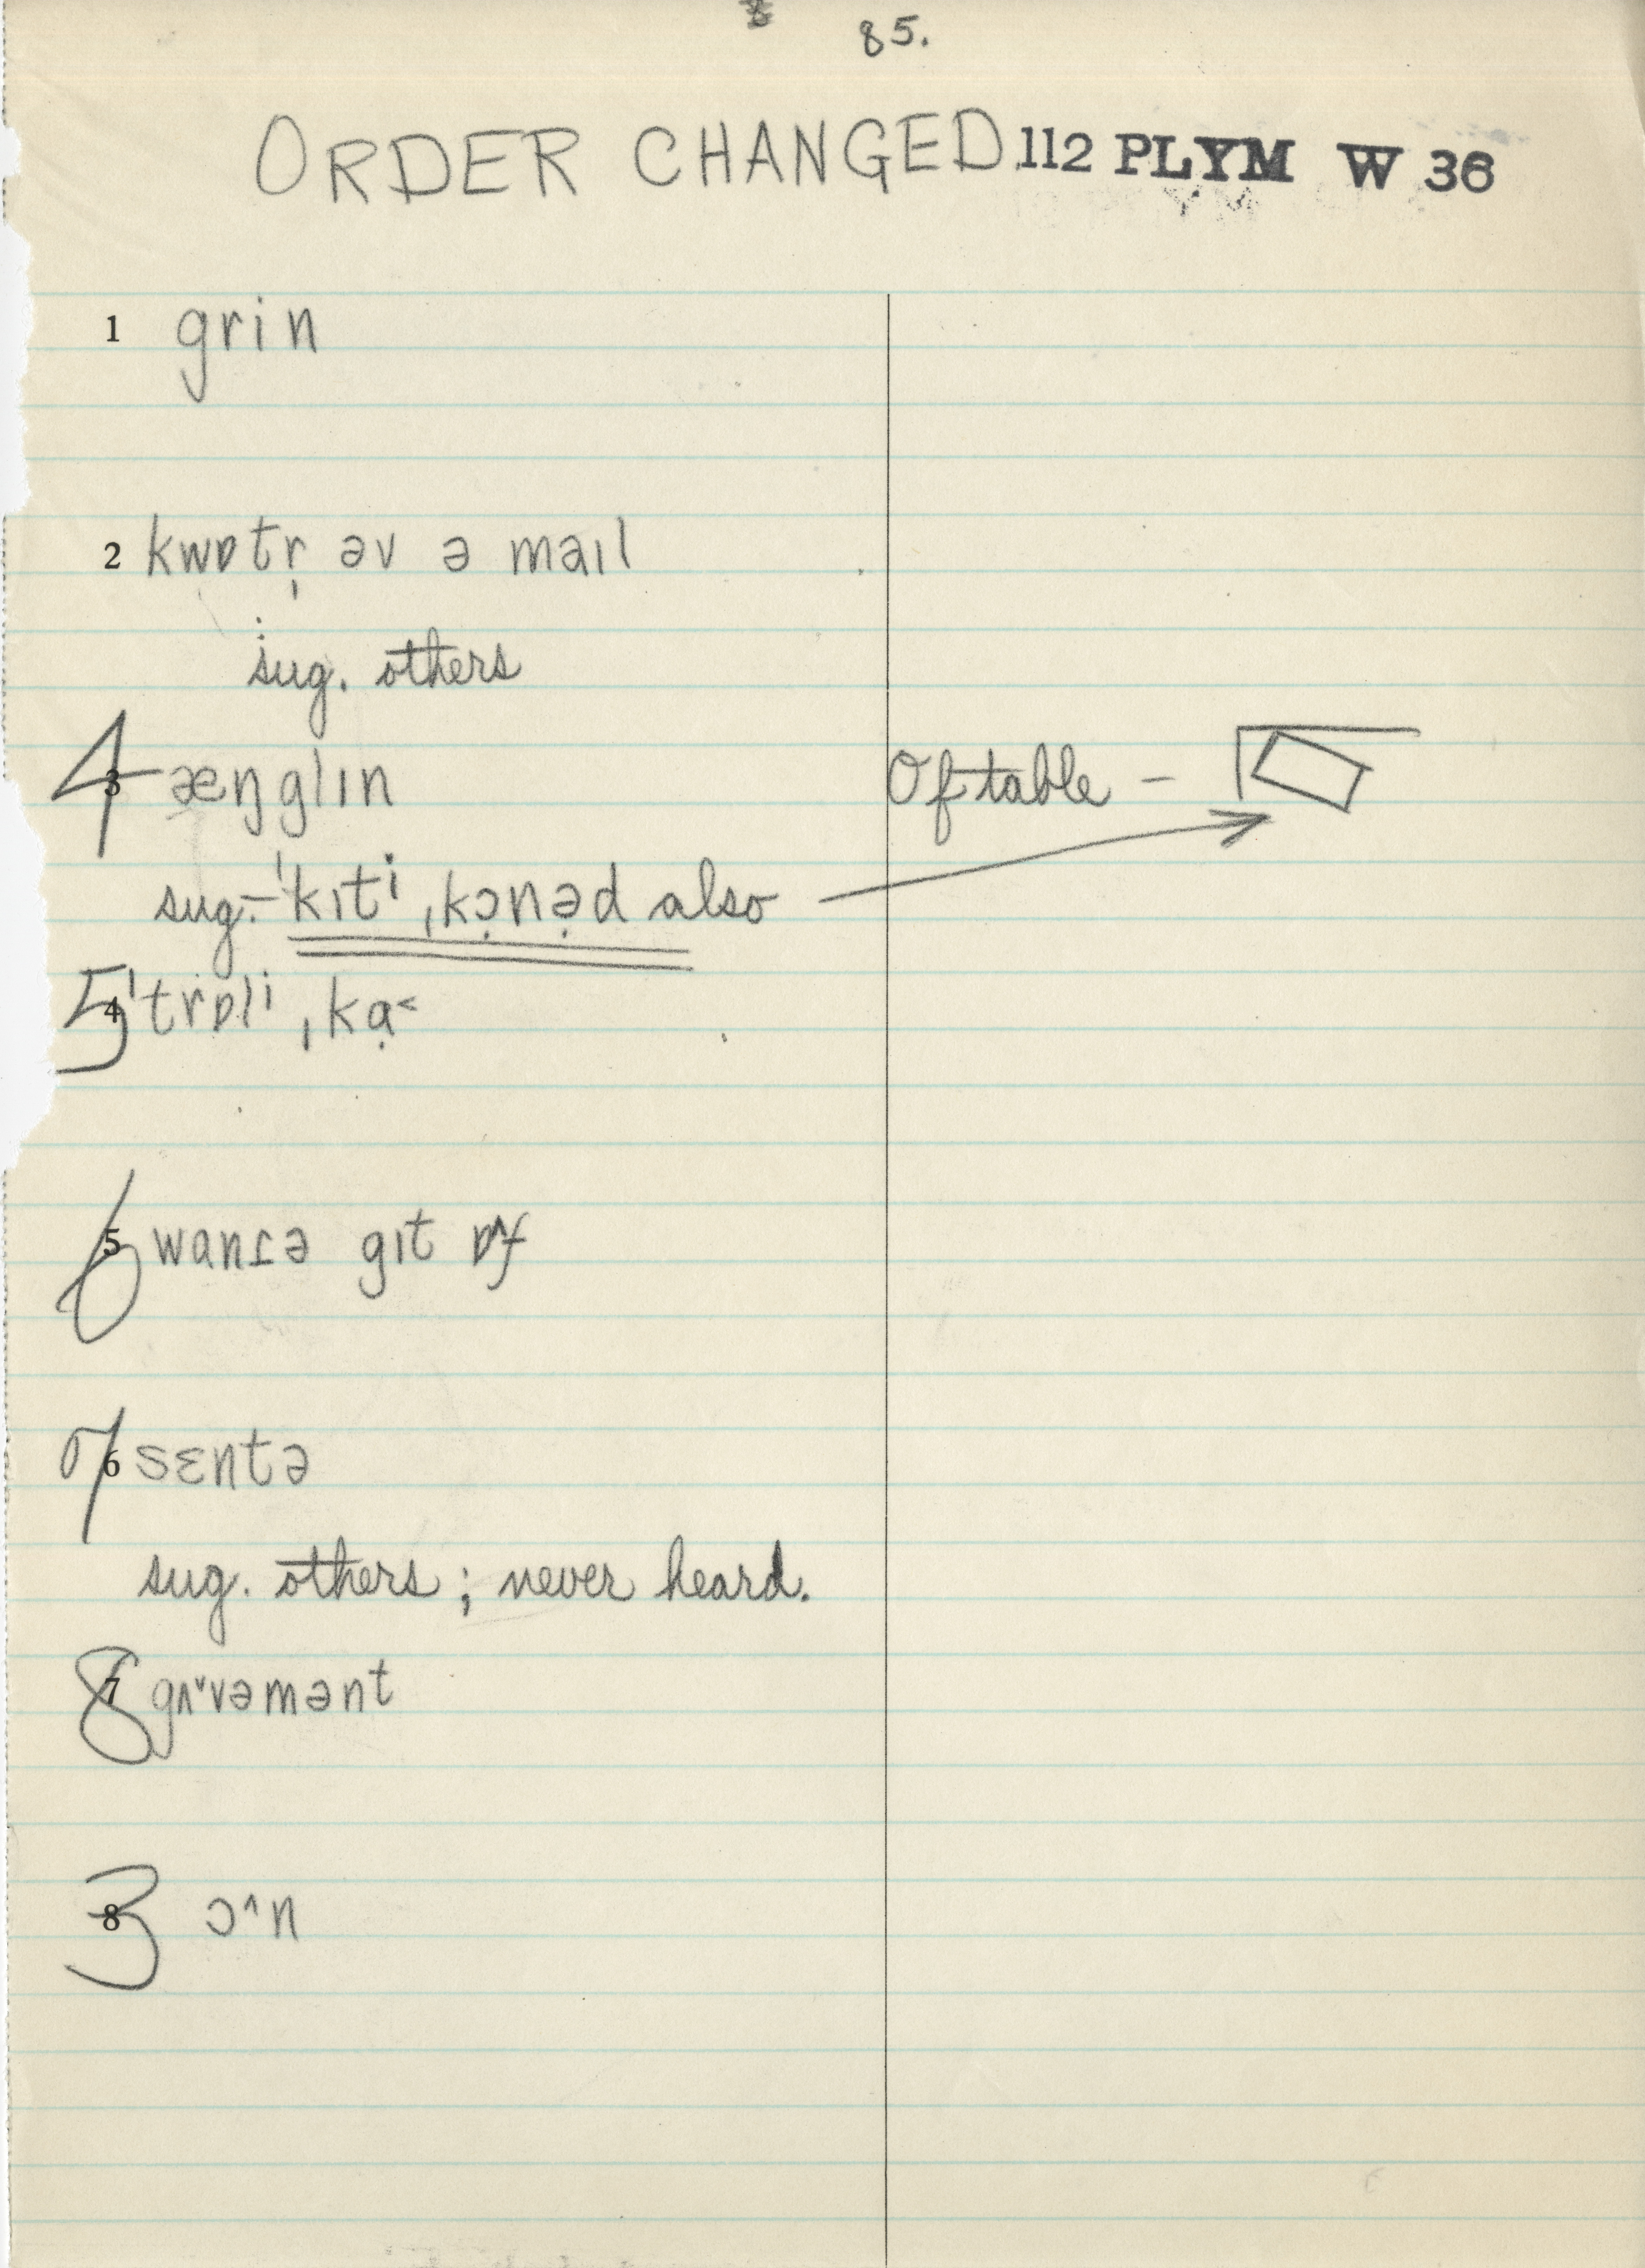 85.
ORDER CHANGED 112 PLYM W 36
1 grin
2 kwɒtr̩ əv ə maɪl
sug. others
4 3 æŋglɪn
Of table –
sug. – ˈkɪtⁱ ˌkɔ̣nə̣d also
5 4 ˈtrɒlⁱ ˌkạ˂
6 5 wanɾə gɪt ɒ^f
7 6 sɛntə
sug. others ; never heard.
8 7 gʌ˅vəmənt
3 8 ɔ^n